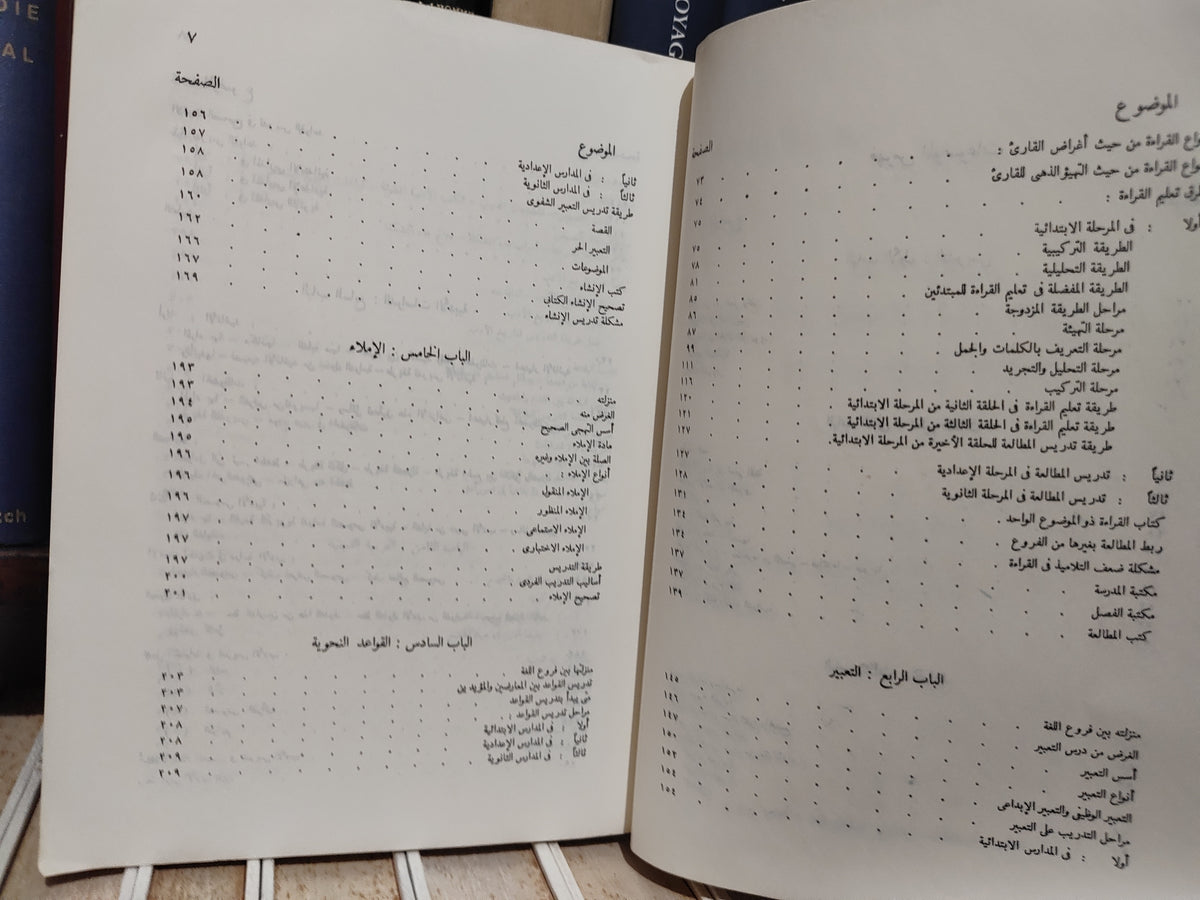 الموضوع
الصفحة
واع القراءة من حيث أغراض القارئ : ٧٣
واع القراءة من حيث التهيؤ الذهنى للقارئ ٧٤
رق تعليم القراءة : ٧٥
أولا : فى المرحلة الابتدائية ٧٥
الطريقة التركيبية ٧٨
الطريقة التحليلية ٨١
الطريقة المفضلة فى تعليم القراءة للمبتدئين ٨٥
مراحل الطريقة المزدوجة ٨٦
مرحلة التهيئة ٨٧
مرحلة التعريف بالكلمات والجمل ٩٩
مرحلة التحليل والتجريد ١١١
مرحلة التركيب ١١٦
طريقة تعليم القراءة فى الحلقة الثانية من المرحلة الابتدائية ١٢٠
طريقة تعليم القراءة فى الحلقة الثالثة من المرحلة الابتدائية ١٢١
طريقة تدريس المطالعة للحلقة الأخيرة من المرحلة الابتدائية. ١٢٧
ثانياً : تدريس المطالعة فى المرحلة الإعدادية ١٢٧
ثالثاً : تدريس المطالعة فى المرحلة الثانوية ١٢٨
كتاب القراءة ذو الموضوع الواحد ١٣١
ربط المطالعة بغيرها من الفروع ١٣٤
مشكلة ضعف التلاميذ فى القراءة ١٣٤
مكتبة المدرسة ١٣٧
مكتبة الفصل ١٣٧
كتب المطالعة ١٣٩
الباب الرابع : التعبير
منزلته بين فروع اللغة ١٤٥
الغرض من درس التعبير ١٤٦
أسس التعبير ١٤٧
أنواع التعبير ١٥٠
التعبير الوظيفى والتعبير الإبداعى ١٥٢
مراحل التدريب على التعبير ١٥٤
أولا : فى المدارس الابتدائية ١٥٤
٧
الموضوع الصفحة
ثانياً : فى المدارس الإعدادية ١٥٦
ثالثاً : فى المدارس الثانوية ١٥٧
طريقة تدريس التعبير الشفوى ١٥٨
القصة ١٥٨
التعبير الحر ١٦٠
الموضوعات ١٦٢
كتب الإنشاء ١٦٦
تصحيح الإنشاء الكتابى ١٦٧
مشكلة تدريس الإنشاء ١٦٩
الباب الخامس : الإملاء
منزلته ١٩٣
الغرض منه ١٩٣
أسس التهجى الصحيح ١٩٤
مادة الإملاء ١٩٥
الصلة بين الإملاء وغيره ١٩٥
أنواع الإملاء : ١٩٦
الإملاء المنقول ١٩٦
الإملاء المنظور ١٩٦
الإملاء الاستماعى ١٩٧
الإملاء الاختبارى ١٩٧
طريقة التدريس ١٩٧
أساليب التدريب الفردى ٢٠٠
تصحيح الإملاء ٢٠١
الباب السادس : القواعد النحوية
منزلتها بين فروع اللغة ٢٠٣
تدريس القواعد بين المعارضين والمؤيدين ٢٠٣
متى يبدأ بتدريس القواعد ٢٠٧
مراحل تدريس القواعد : ٢٠٨
أولا : فى المدارس الابتدائية ٢٠٨
ثانياً : فى المدارس الإعدادية ٢٠٩
ثالثاً : فى المدارس الثانوية ٢٠٩
DIE
AL
tch
OYAG